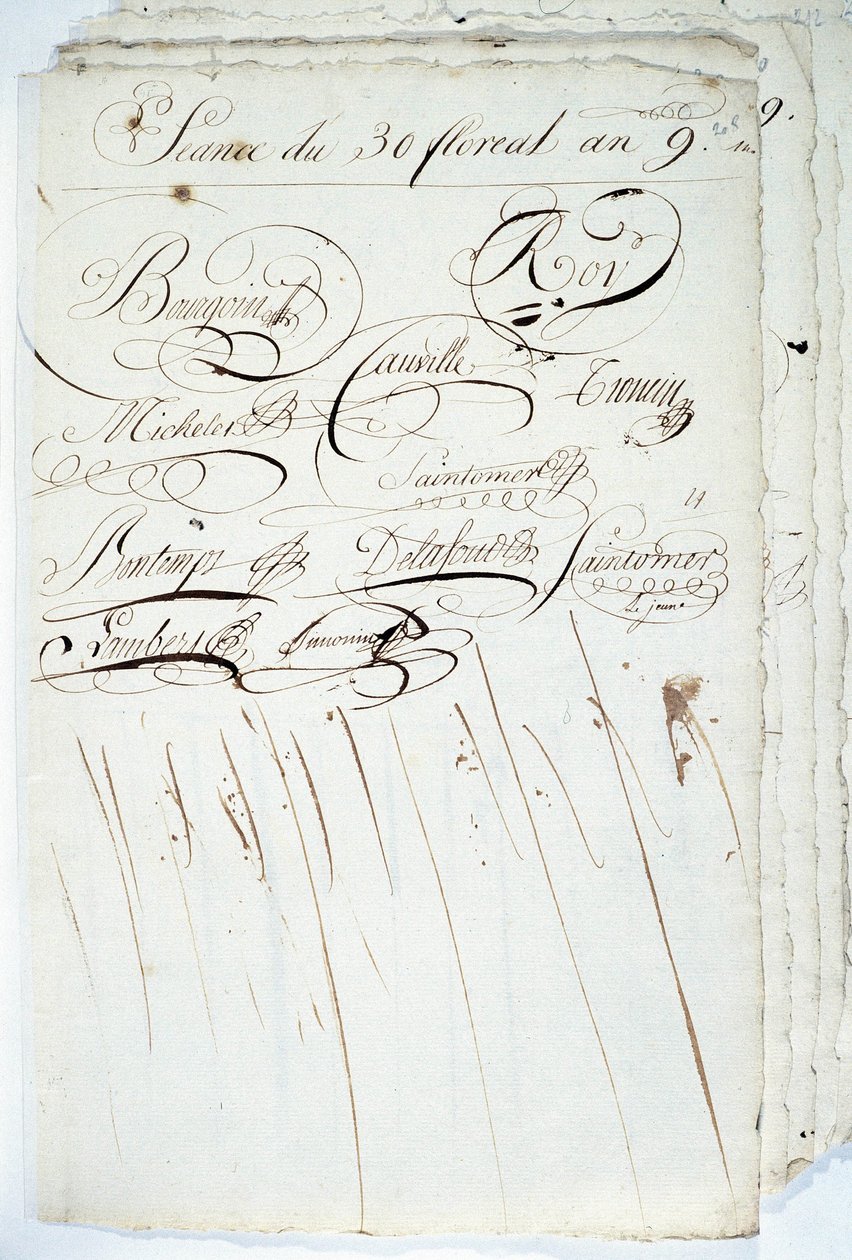 Seance du 30 floreal an 9.
208
9.
212
Bourgoin
Roy
Cauville
Tronein
Micheler
Saintomer
14
Bontemps
Delafoude
Saintomer
Le jeune
Lambert
Simonin